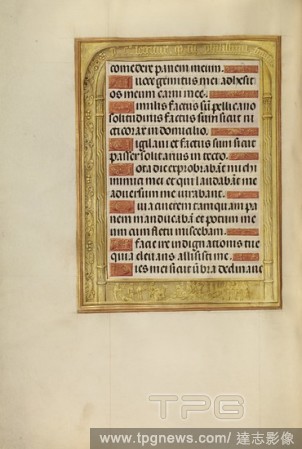 comedere panem meum.
A voce gemitus mei adhesit
os meum carni mee.
Similis factus sũ pellicano
solitudinis factus sum sicut ni
cticorax in domicilio.
Vigilaui et factus sum sicut
passer solitarius in tecto.
Tota die exprobrabãt michi
inimici mei et qui laudabãt me
aduersum me iurabant.
Quia cinerem tamquam pa
nem manducabã et potum me
um cum fletu miscebam.
A facie ire indignationis tue
quia eleuans allisisti me.
Dies mei sicut ũbra declinaue
TPG
www.tpgnews.com/達志影像